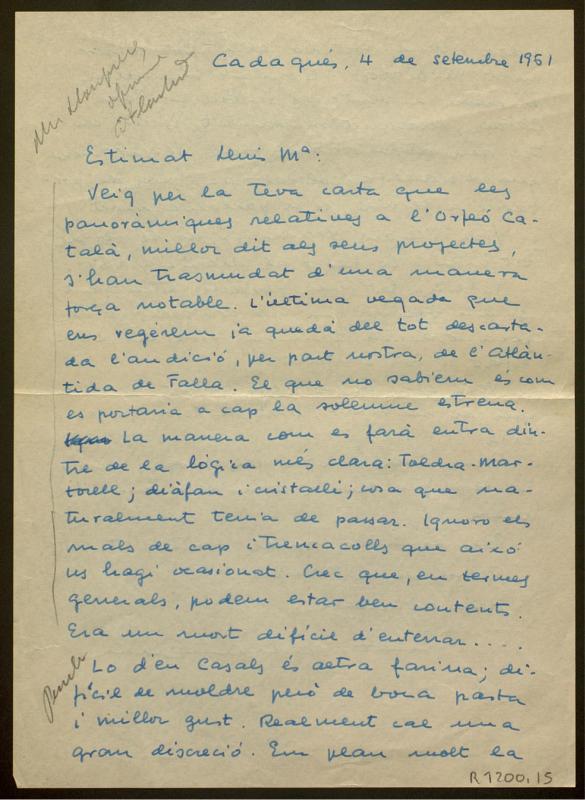 Cadaqués, 4 de setembre 1961
Estimat Lluis Mª:
Veig per la teva carta que les
panoràmiques relatives a l'Orfeó Ca-
talà, millor dit als seus projectes,
s'han trasmudat d'una manera
força notable. L'última vegada que
ens vegérem ja quedà del tot descarta-
da l'audició, per part nostra, de l'Atlàn-
tida de Falla. El que no sabiem és com
es portaria a cap la solemne estrena.
La manera com es farà entra din-
tre de la lògica més clara: Toldra-Mar-
torell; diàfan i cristallí; cosa que na-
turalment tenia de passar. Ignoro els
mals de cap i trencacolls que aixó
us hagi ocasionat. Crec que, en termes
generals, podem estar ben contents.
Era un mort difícil d'enterrar....
Lo d'en Casals és altra farina; di-
fícil de moldre peró de bona pasta
i millor gust. Realment cal una
gran discreció. Em plau molt la
R 1200, 15